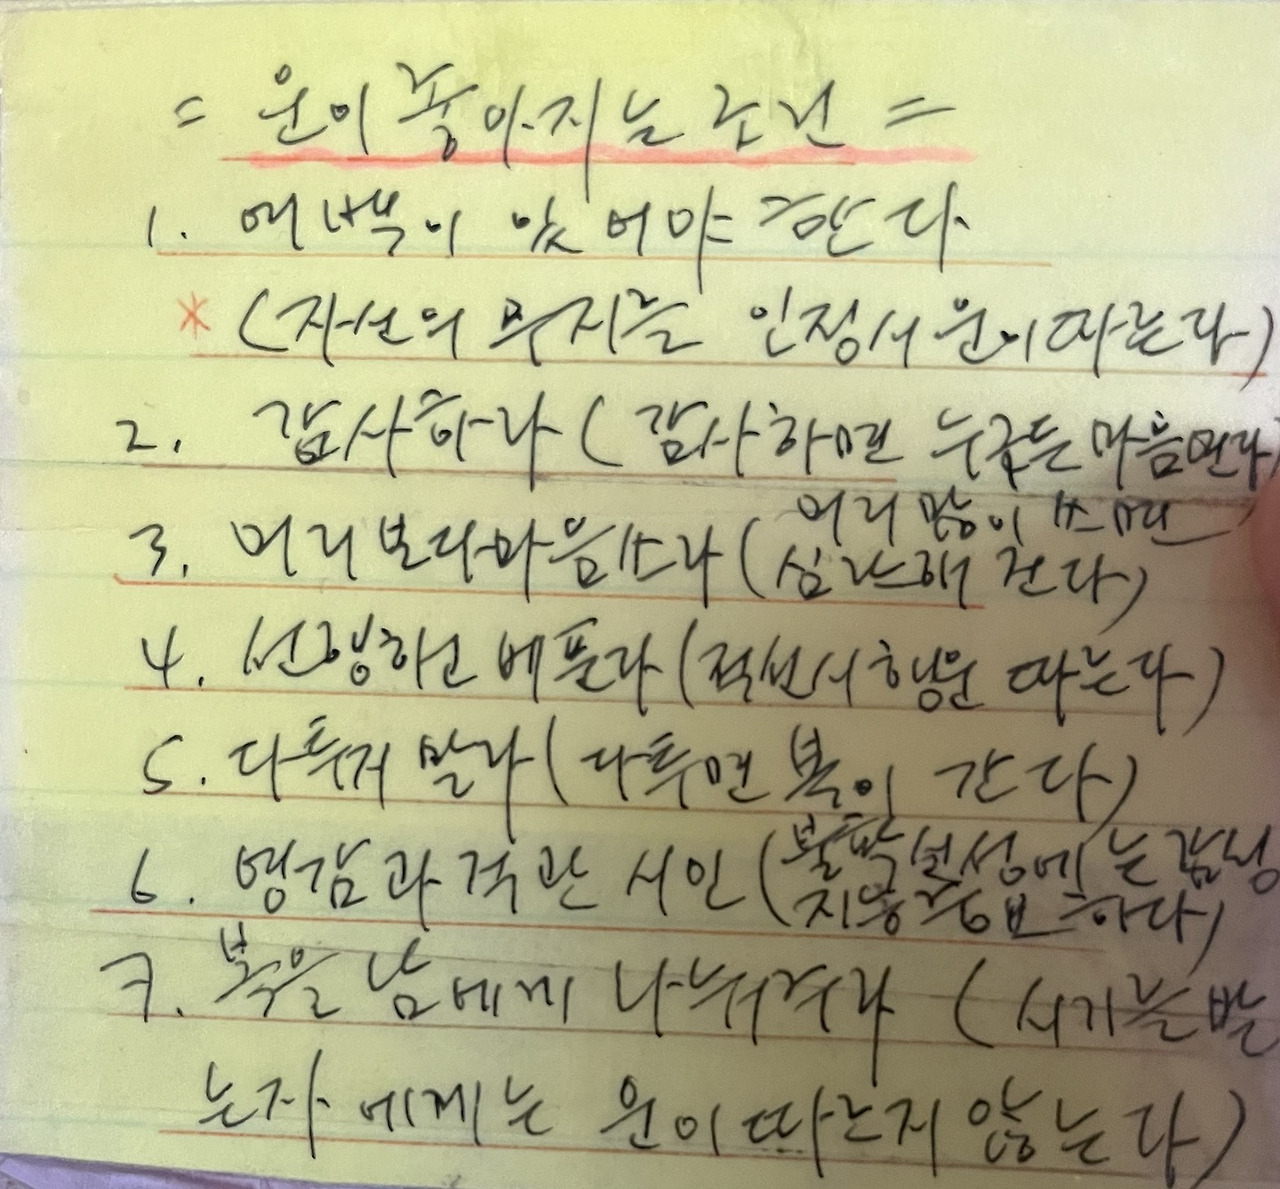 = 운이 좋아지는 조건 =
1. 여백이 있어야 한다
* (자신의 무지를 인정시 운이 따른다)
2. 감사하라 ( 감사하면 누구든 마음연다
3. 머리보다 마음쓰라 ( 머리 많이 쓰면
심란해 진다)
4. 선행하고 베푼다 (적선시 행운 따른다)
5. 다투지 말라 ( 다투면 복이 간다)
6. 영감과 직관 시인 (불확실성에는
지능 하다)
7. 복을 남에게 나눠주라 ( 시기를 받
는자 에게는 운이 따르지 않는다)